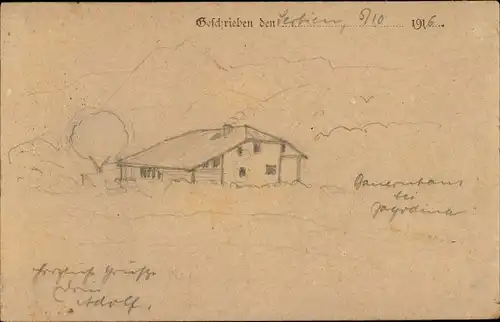 Geschrieben den Serbien, 5/10 1916.
Bauernhaus
bei
Jagodina
Herzliche Grüße
Dein
Adolf.